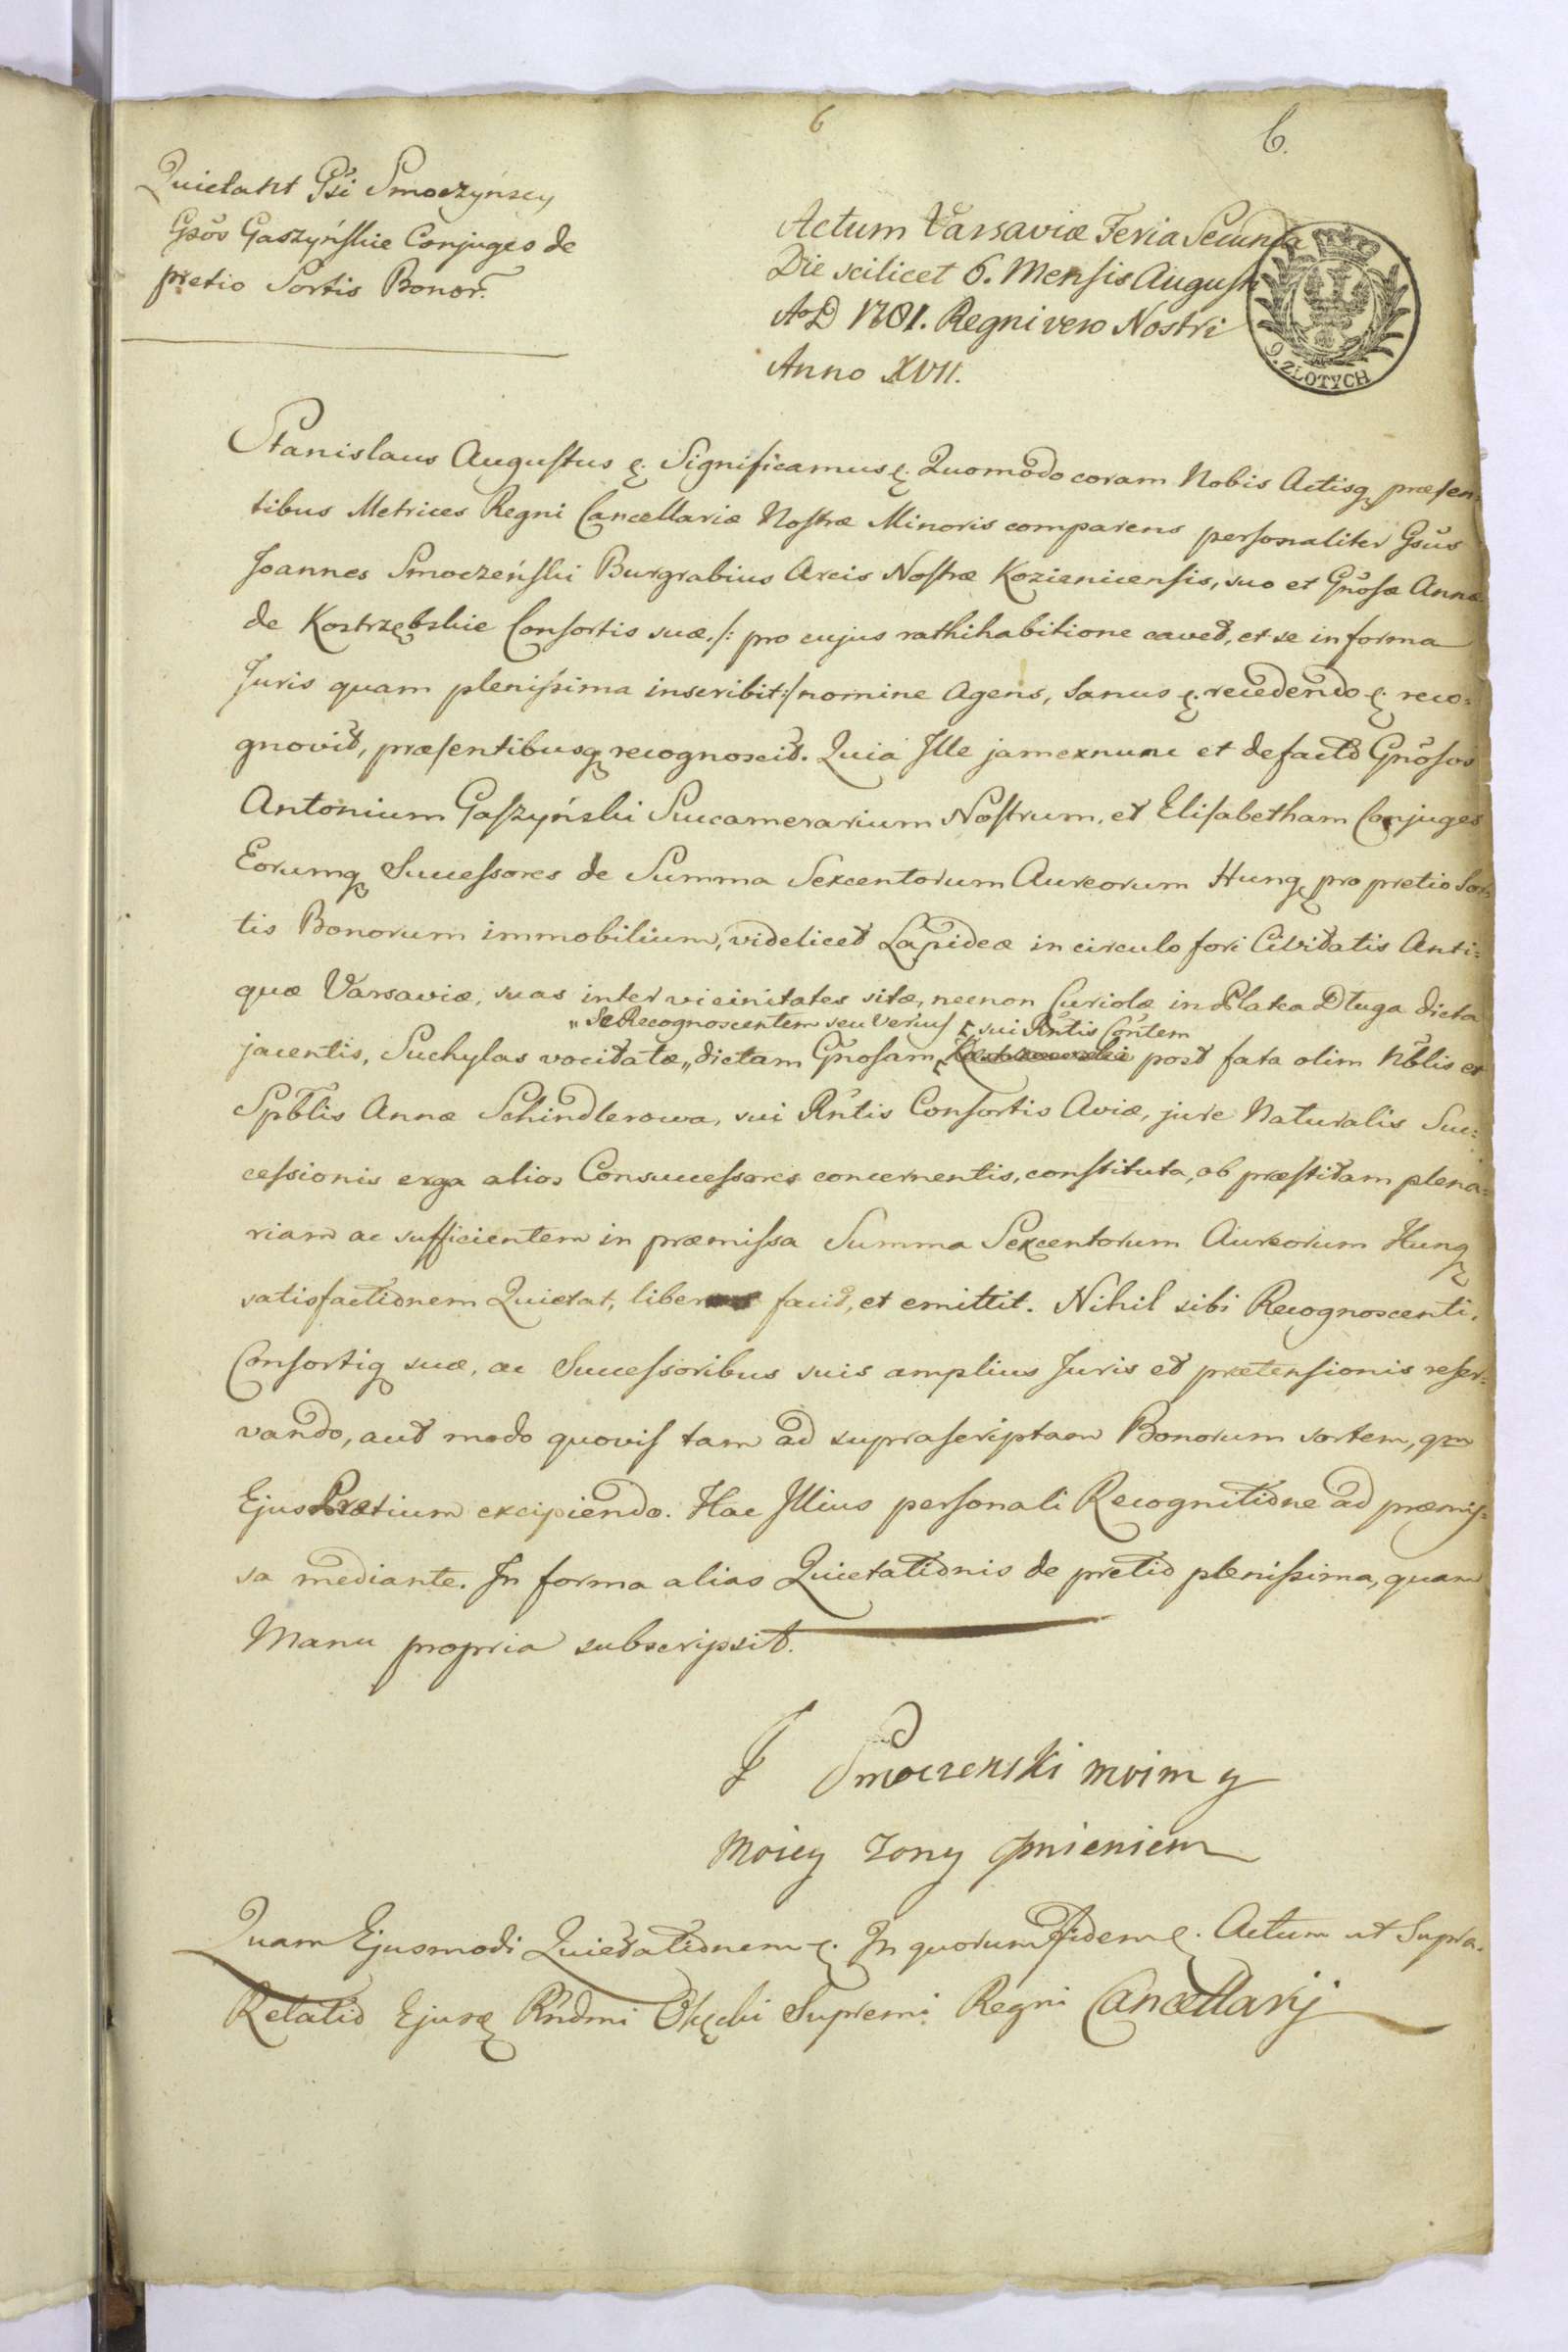 6
6.
Quietant Gsi Smoczyńscy
Gsos Gaszyńskie Conjuges de
pretio Sortis Bonor.
Actum Varsaviæ Feria Secunda
Die scilicet 6. Mensis Augusti
AoD 1781. Regni vero Nostri
Anno XVII.
9. ZŁOTYCH
Stanislaus Augustus &. Significamus &. Quomodo coram Nobis Actisq præsen=
tibus Metrices Regni Cancellariæ Nostræ Minoris comparens personaliter Gsus
Joannes Smoczeński Burgrabius Arcis Nostræ Kozienicensis, suo et Gnosæ Annæ
de Kostrzębskie Consortis suæ, /: pro cujus rathihabitione cavet, et se in forma
Juris quam plenissima inscribit :/ nomine Agens, Sanus &. recedendo &. reco=
gnovit, præsentibusq recognoscit. Quia Ille jam exnunc et de facto Gnosos
Antonium Gaszyński Succamerarium Nostrum, et Elisabetham Conjuges
Eorumq Successores de Summa Sexcentorum Aureorum Hung pro pretio Sor
tis Bonorum immobilium, videlicet Lapideæ in circulo fori Civitatis Anti=
quæ Varsaviæ, suas inter vicinitates sitæ, necnon Curiolæ in Platea Długa dicta
„Se Recognoscentem seu verius sui Rntis Contem
jacentis, Suchylas vocitatæ „ dictam Gnosam post fata olim Nblis et
Spblis Annæ Schindlerowa, sui Rntis Consortis Aviæ, jure Naturalis Suc=
cessionis erga alios Consuccessores concernentis, constituta, ob præstitam plena=
riam ac sufficientem in præmissa Summa Sexcentorum Aureorum Hung
satisfactionem Quietat, liber facit, et emittit. Nihil sibi Recognoscenti,
Consortiq suæ, ac Successoribus suis amplius Juris et prætensionis reser=
vando, aut modo quovis tam ad suprascriptam Bonorum sortem, qm
Ejus Prætium excipiendo. Hac Illius personali Recognitione ad præmis=
sa mediante. In forma alias Quietationis de pretio plenissima, quam
Manu propria subscripsit.
J Smoczenski moim y
moiey zony jmieniem
Quam Ejusmodi Quietationem &. In quorum fidem &. Actum ut Supra.
Relatio Ejusd Rndmi Okęcki Supremi Regni Cancellarij